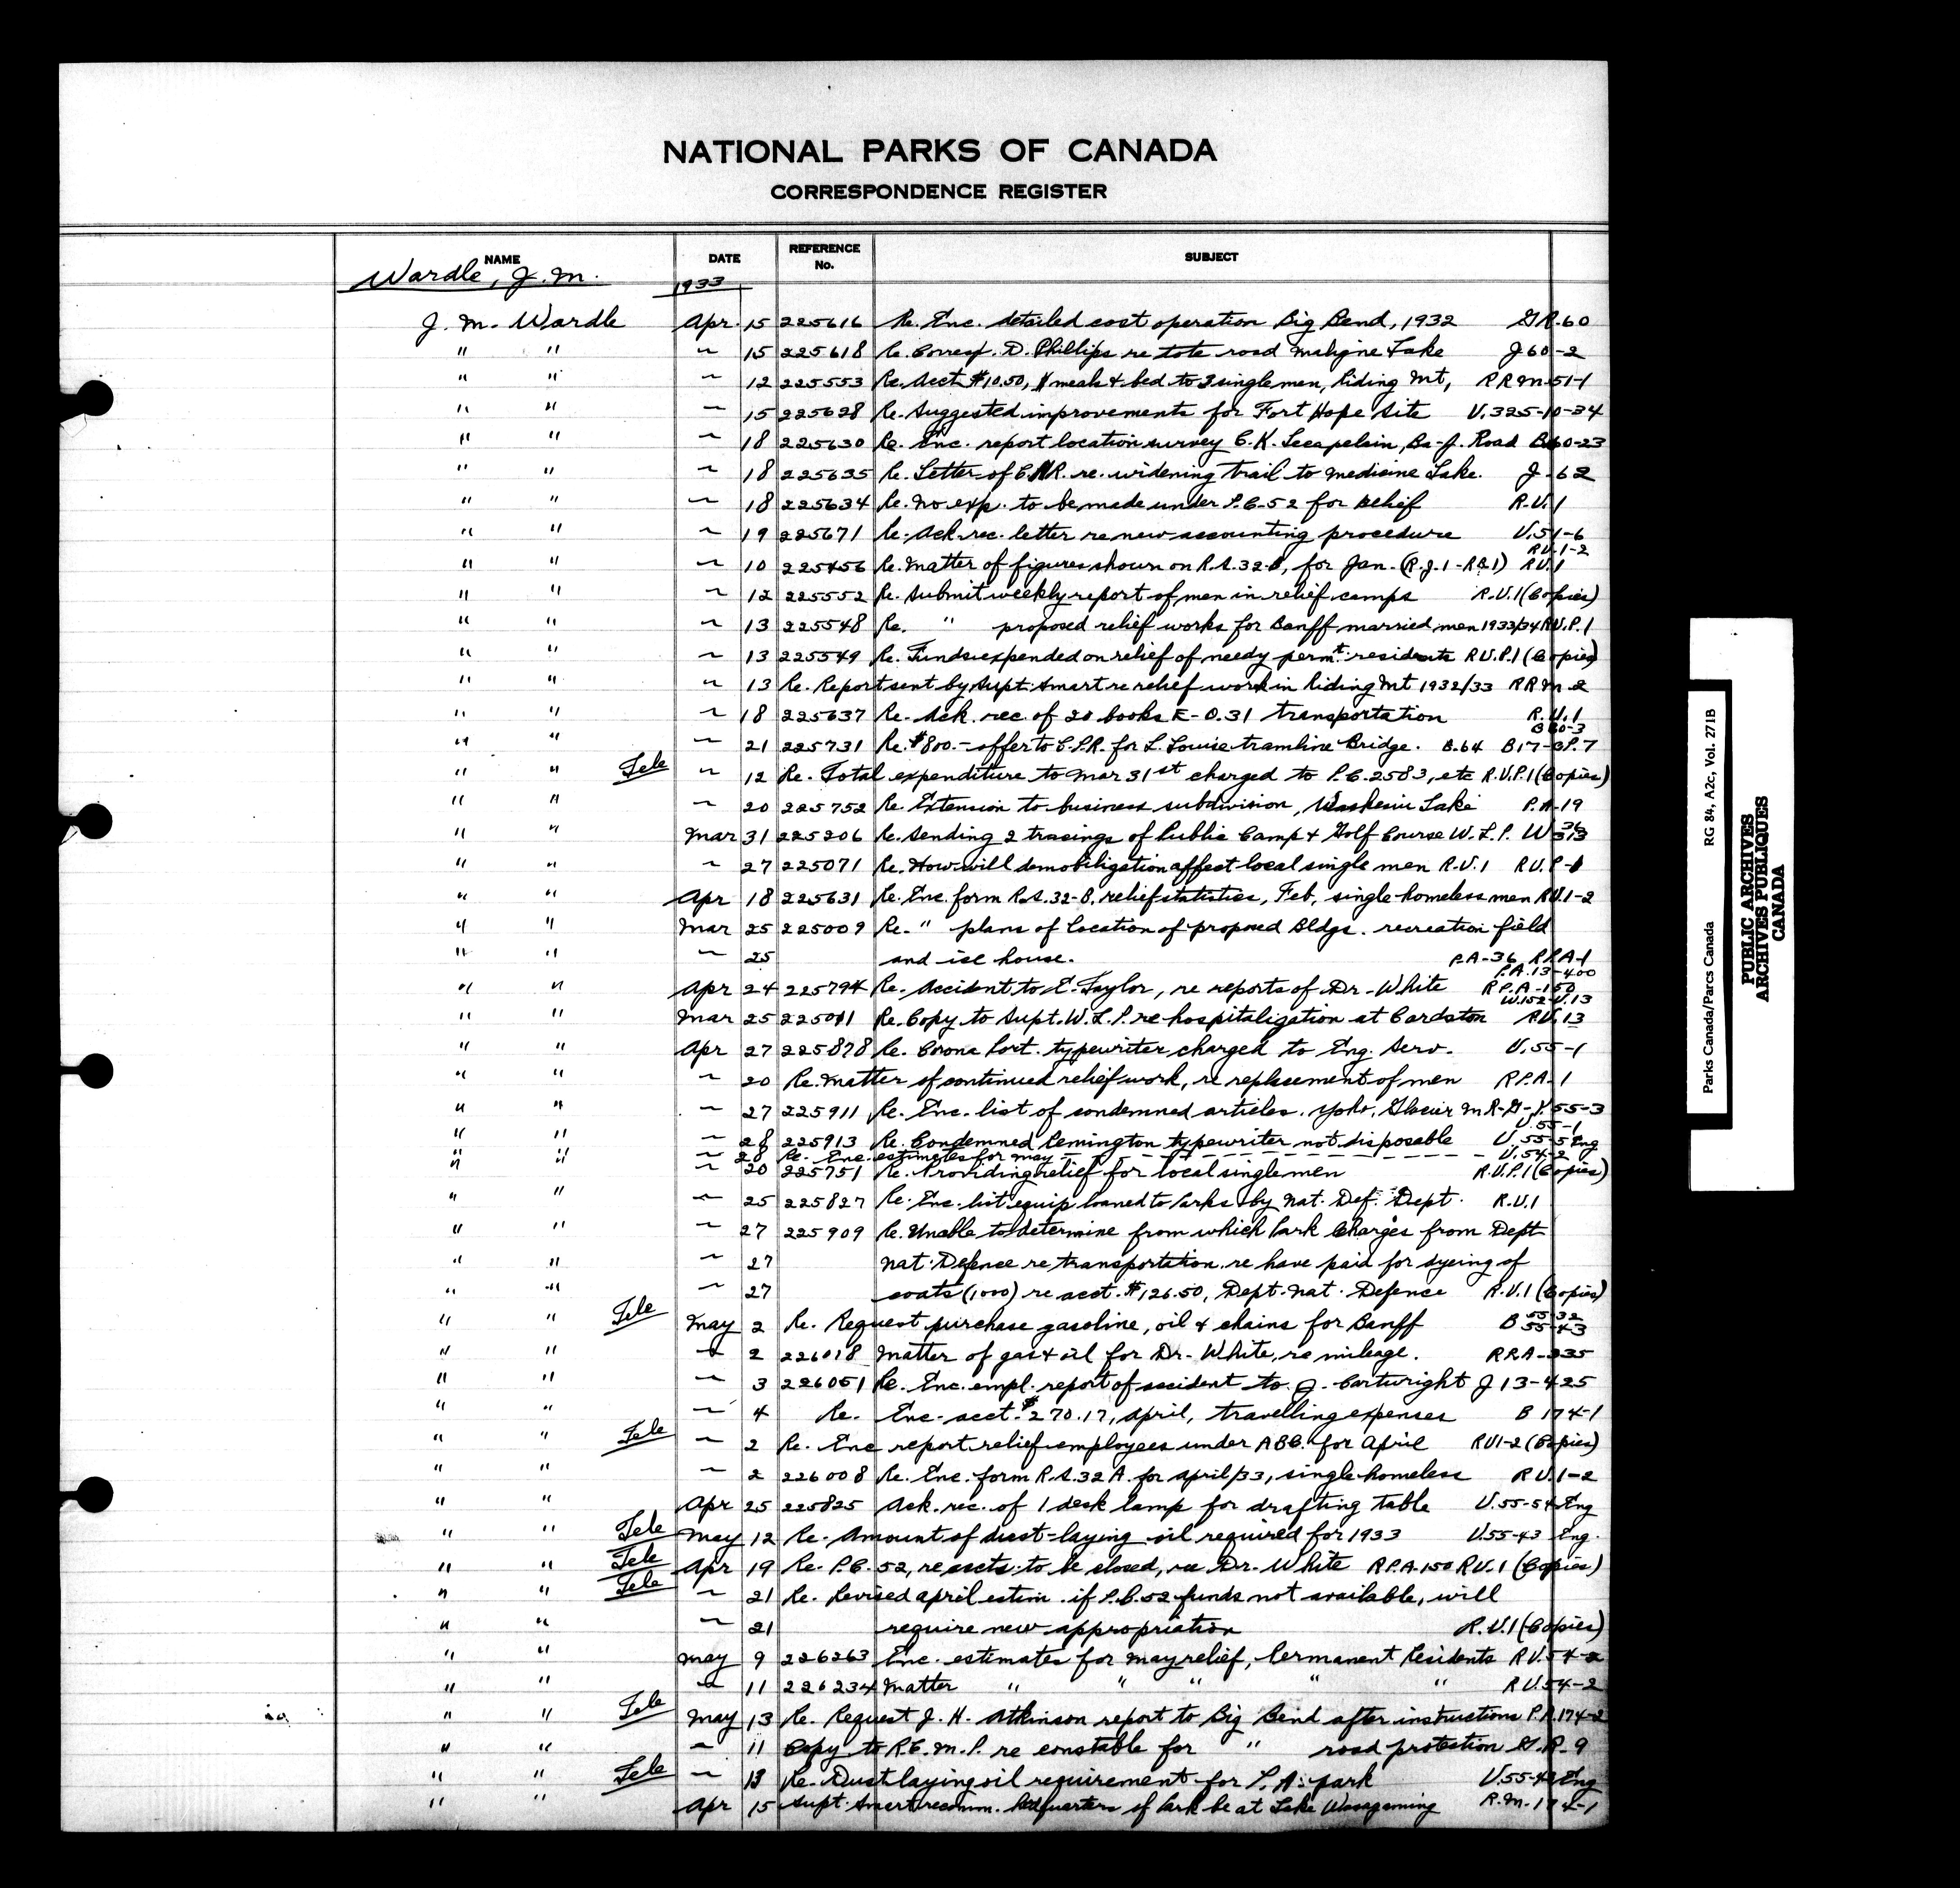 NATIONAL PARKS OF CANADA
CORRESPONDENCE REGISTER
NAME DATE REFERENCE No. SUBJECT
Wardle, J. M. 1933
J. M. Wardle Apr. 15 225616 Re. Enc. detailed cost operation Big Bend, 1932 G.R.60
" " ~ 15 225618 Re. Corresp. D. Phillips re tote road Maligne Lake J60-2
" " ~ 12 225553 Re. Acct $10.50, meals & bed to 3 single men, Riding Mt, R R M-51-1
" " ~ 15 225628 Re. Suggested improvements for Fort Hope Site U.325-10-34
" " ~ 18 225630 Re. Enc. report location survey C. K. Lecapelain, Ba-J. Road B60-23
" " ~ 18 225635 Re. Letter of C.N.R. re. widening trail to Medicine Lake. J-62
" " ~ 18 225634 Re. No exp. to be made under P.C.52 for Relief R.U.1
" " ~ 19 225671 Re. Ack. rec. letter re new accounting procedure U.51-6
R.U.1-2
" " ~ 10 225456 Re. Matter of figures shown on R.S.32-B, for Jan. (R.J.1-RB1) R.U.1
" " ~ 12 225552 Re. Submit weekly report of men in relief camps R.U.1 (Copies)
" " ~ 13 225548 Re. " proposed relief works for Banff married men 1933/34 R.U.P.1
" " ~ 13 225549 Re. Funds expended on relief of needy permt. residents R.U.P.1 (Copies)
" " ~ 13 Re. Report sent by Supt. Smart re relief work in Riding Mt 1932/33 R R M-2
" " ~ 18 225637 Re. Ack. rec. of 20 books E-O.31 transportation R.U.1
B60-3
" " ~ 21 225731 Re. $800.- offer to C.P.R. for L. Louise tramline Bridge. B.64 B17-
" " Tele ~ 12 Re. Total expenditure to Mar 31st charged to P.C.2583, etc R.U.P.1 (Copies)
" " ~ 20 225752 Re. Extension to business subdivision, Waskesiu Lake P.A-19
" " Mar 31 225206 Re. Sending 2 tracings of Public Camp & Golf Course W.L.P. W
" " ~ 27 225071 Re. How will demobilization affect local single men R.U.1 R.U.P-1
" " Apr 18 225631 Re. Enc. form R.S.32-B, relief statistics, Feb, single homeless men R.U.1-2
" " Mar 25 225009 Re. " plans of location of proposed Bldgs. recreation field
" " ~ 25 and ice house. P.A-36 R.P.A-1
P.A.13-400
" " Apr 24 225794 Re. Accident to E. Taylor, re reports of Dr. White R.P.A-150
W.152-U.13
" " Mar 25 225011 Re. Copy to Supt. W.L.P. re hospitalization at Cardston R.U.13
" " Apr 27 225878 Re. Corona Port. typewriter charged to Eng. Serv. U.55-1
" " ~ 20 Re. Matter of continued relief work, re replacement of men R.P.A-1
" " ~ 27 225911 Re. Enc. list of condemned articles. Yoho, Glacier M R-G-Y.55-3
U.55-1
" " ~ 28 225913 Re. Condemned Remington typewriter not disposable U.55-5 Eng
" " ~ 28 Re. Enc. estimates for May U.54-2
" " ~ 20 225751 Re. Providing relief for local single men R.U.P.1 (Copies)
" " ~ 25 225827 Re. Enc. list equip loaned to Parks by Nat. Def. Dept. R.U.1
" " ~ 27 225909 Re. Unable to determine from which Park Charges from Dept
" " ~ 27 Nat. Defence re transportation. re have paid for dyeing of
" " ~ 27 coats (1000) re acct. $126.50, Dept. Nat. Defence R.U.1 (Copies)
" " Tele May 2 Re. Request purchase gasoline, oil & chains for Banff B 55-32 55-43
" " ~ 2 226018 Matter of gas & oil for Dr. White, re mileage. R.P.A-235
" " ~ 3 226051 Re. Enc. empl. report of accident to J. Cartwright J 13-425
" " ~ 4 Re. Enc. acct. $270.17, April, travelling expenses B 174-1
" " Tele ~ 2 Re. Enc report relief employees under ABC. for April R.U.1-2 (Copies)
" " ~ 2 226008 Re. Enc. form R.S.32 A. for April/33, single homeless R.U.1-2
" " Apr 25 225825 Ack. rec. of 1 desk lamp for drafting table U.55-54 Eng
" " Tele May 12 Re. Amount of dust-laying oil required for 1933 U.55-43 Eng.
" " Tele Apr 19 Re. P.C.52, re accts. to be closed, re Dr. White R.P.A.150 R.U.1 (Copies)
" " Tele ~ 21 Re. Revised April estim. if P.C.52 funds not available, will
" " ~ 21 require new appropriation R.U.1 (Copies)
" " May 9 226263 Enc. estimates for May relief, Permanent Residents R.U.54-2
" " ~ 11 226234 Matter " " " " " R.U.54-2
" " Tele May 13 Re. Request J. H. Atkinson report to Big Bend after instructions P.A.174-2
" " ~ 11 Copy to R.C.M.P. re constable for " road protection G.R-9
" " Tele ~ 13 Re. Dust laying oil requirement for P.A. park U.55-43 Eng
" " Apr 15 Supt. Smart recomm. Headquarters of Park be at Lake Wasagaming R.M.174-1
Parks Canada/Parcs Canada RG 84, A2c, Vol. 271B
PUBLIC ARCHIVES
ARCHIVES PUBLIQUES
CANADA